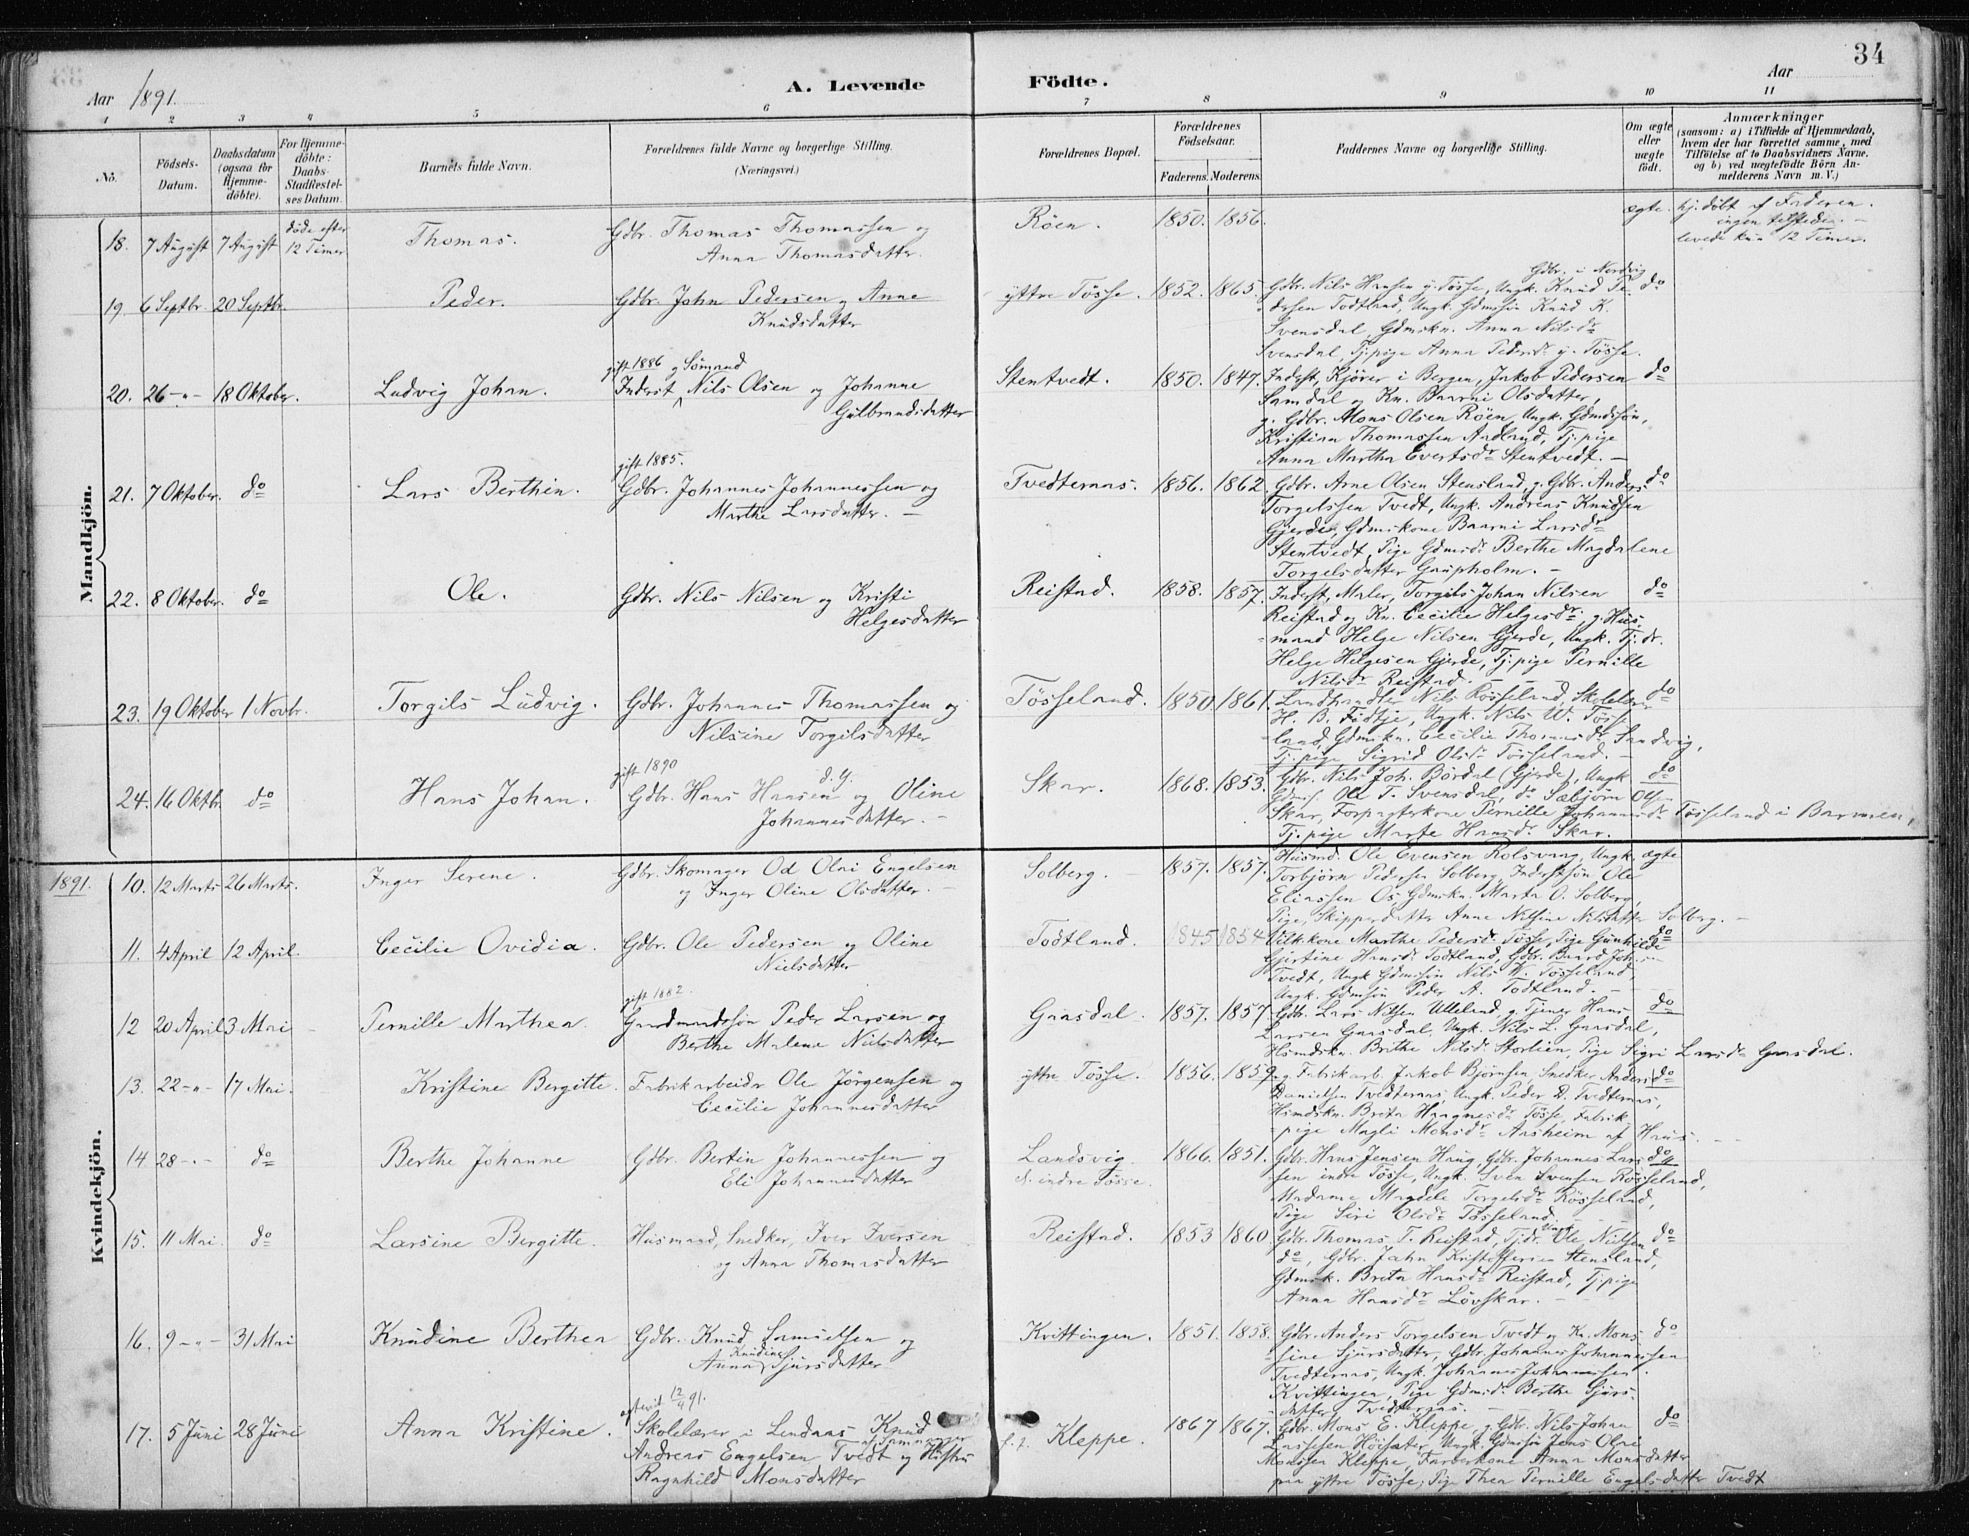 34
Aar 1891. A. Levende Födte. Aar
1 2 3 4 5 6 7 8 9 10 11
No. Födsels-Datum. Daabsdatum (ogsaa for Hjemme-döbte). For Hjemme-döbte: Daabs-Stadfæstel-ses Datum. Barnets fulde Navn. Forældrenes fulde Navne og borgerlige Stilling. (Næringsvei.) Forældrenes Bopæl. Forældrenes Födselsaar. Faderens. Moderens. Faddernes Navne og borgerlige Stilling. Om ægte eller uægte födt. Anmærkninger (saasom: a) i Tilfælde af Hjemmedaab, hvem der har forrettet samme, med Tilföielse af to Daabsvidners Navne. og b) ved uægtefödte Börn An-melderens Navn m. V.)
Mandkjön.
18. 7 August 7 August döde efter 12 Timer Thomas. Gdbr. Thomas Thomassen og
Anna Thomasdatter. Röen. 1850. 1856. ægte. hj. döbt af Faderen.
ingen tilstede. –
levede kun 12 Timer.
19. 6 Septbr. 20 Septbr. Peder. Gdbr. John Pedersen og Anne
Knudsdatter yttre Tösse. 1852. 1865. Gdbr. i Nordvig
Gdbr. Nils Hansen y. Tösse, Ungk. Knud Pe- do
dersen Todtland, Ungk. Gdmsön Knud K.
Svensdal, Gdmskn. Anna Nilsdr
Svensdal, Tj.pige Anna Pedersdr y. Tösse.
20. 26 -"- 18 Oktober. Ludvig Johan. gift 1886 og Sömand
Inderst Nils Olsen og Johanne
Gulbrandsdatter Stentvedt. 1850. 1847. Inderst, Kjörer i Bergen, Jakob Pedersen do
Samdal og Kn. Baarni Olsdatter,
g. Gdbr. Mons Olsen Röen, Ungk. Gdmdssön,
Kristian Thomassen Aadland, Tj.pige
Anna Martha Evertsdr Stentvedt. –
21. 7 Oktober. do Lars Berthin. gift 1885.
Gdbr. Johannes Johannessen og
Marthe Larsdatter. – Tvedternas. 1856. 1862. Gdbr. Arne Olsen Stensland, g. Gdbr. Anders do
Torgelssen Tvedt, Ungk. Andreas Knudsen
Gjerde, Gdmskone Baarni Larsdr
Stentvedt, Pige Gdmsdr Berthe Magdalene
Torgelsdatter Gaupholm. –
22. 8 Oktober. do Ole. Gdbr. Nils Nilsen og Kristi
Helgesdatter Reistad. 1858. 1857. Inderst, Maler, Torgils Johan Nilsen do
Reistad og Kn. Cecilie Helgesdr, g. Hus-
mand Helge Nilsen Gjerde, Ungk. Tj.dr.
Helge Helgesen Gjerde, Tj.pige Pernille
Nilsdr Reistad.
23. 19 Oktober 1 Novbr. Torgils Ludvig. Gdbr. Johannes Thomassen og
Nilsine Torgilsdatter Tösseland. 1850 1861. Landhandler Nils Rösseland, Skolelærer do
H. B. Födtje, Ungk. Nils W. Tösse-
land, Gdmskn. Cecilie Thomasdr Sandvig,
Tj.pige Sigrid Olsdr Tösseland. –
24. 16 Oktbr. do Hans Johan. gift 1890
Gdbr. Hans Hansen d. y. og Oline
Johannesdatter. – Skar. 1868. 1853. Gdbr. Nils Joh. Bördal (Gjerde), Ungk. do
Gdms. Ole T. Svensdal, do Sæbjörn Olsen
Skar, Forpagterkone Pernille Johannesdr Tösseland i Barmen,
Tj.pige Marte Hansdr Skar.
Kvindekjön.
1891. 10. 12 Marts 26 Marts. Inger Serene. Gdbr. Skomager Od Olai Engelsen
og Inger Oline Olsdatter. – Solberg. – 1857. 1857. Husmd. Ole Evensen Rolsvaag, Ungk. ægte
Torbjörn Pedersen Solberg, Inderstsön Ole
Eliassen Os, Gdmskn. Marta O. Solberg,
Pige, Skipperdatter Anne Nilsine Nilsdatter Solberg. –
11. 4 April 12 April. Cecilie Ovidia. Gdbr. Ole Pedersen og Oline
Nielsdatter Todtland. 1845 1854 Vilk.kone Marthe Pedersdr Tösse, Pige Gunhilde do
Gjertine Hansdr Todtland, Gdbr. Baard Joh.
Tvedt, Ungk. Gdmsön Nils W. Tösseland
Ungk. Gdmsön Peder A. Todtland. –
12 20 April 3 Mai – Pernille Marthea. gift 1882.
Gaardmandssön Peder Larsen og
Berthe Malene Nielsdatter Gaasdal. 1857. 1857. Gdbr. Lars Nilsen Ulleland, g. Tjener Hans do
Larsen Gaasdal, Ungk. Nils L. Gaasdal,
Hsmdskn. Brithe Nilsdr Storlien, Pige Sigri Larsdr Gaasdal.
13. 22 -"- 17 Mai. Kristine Bergitte. Fabrikarbeidr Ole Jörgensen og
Cecilie Johannesdatter yttre Tösse. 1856. 1859. g. Fabrikarb. Jakob Björnsen, Snedker Anders do
Danielsen Tvedternas, Ungk. Peder D. Tvedternas,
Hsmdskn. Brita Haagnesdr Tösse, Fabrik-
pige Magli Monsdr Aasheim af Haus. –
14 28 -"- do Berthe Johanne Gdbr. Bertin Johannessen og
Eli Johannesdatter Landsvig
u. indre Tösse. 1866. 1851. Gdbr. Hans Jensen Haug, Gdbr. Johannes Lars- do
sen indre Tösse, Ungk. Sven Svensen Rösseland,
Madame Magdele Torgelsdr Rösseland,
Pige Siri Olsdr Tösseland.
15. 11 Mai. do Larsine Bergitte. Husmand, Snedker, Iver Iversen
og Anna Thomasdatter Reistad. 1853 1860 Gdbr. Thomas T. Reistad, Tjdr. Ungk. Ole Nilsen do
do, Gdbr. Jahn Kristoffersen Stensland,
Gdmsk. Brita Hansdr Reistad, Tj.pige
Anna Hansdr Lövskar. –
16. 9 -"- 31 Mai Knudine Berthea Gdbr. Knud Samuelsen og
Anna Knudine Sjursdatter Kvittingen. 1851. 1858. Gdbr. Anders Torgelsen Tvedt og Kn. Mons- do
sine Sjursdatter, Gdbr. Johannes Johannessen
Tvedternas, Ungk. Johannes Johannesen
Kvittingen, Pige Gdmsdr Berthe Sjurs-
datter Tvedternas. –
17. 5 Juni 28 Juni Anna Kristine. 12/4 91.
Skolelærer i Lindaas Knud
Andreas Engelsen Tvedt og Hustru
Ragnhild Monsdatter Kleppe. 1867 1867. Gdbr. Mons E. Kleppe, g. Gdbr. Nils Johan do
Larssen Höisæter, Ungk. Gdmsön Jens Olai
Monssen Kleppe, Farverkone Anna Monsdatter
paa yttre Tösse, Pige Thea Pernille Engelsdatter Tvedt